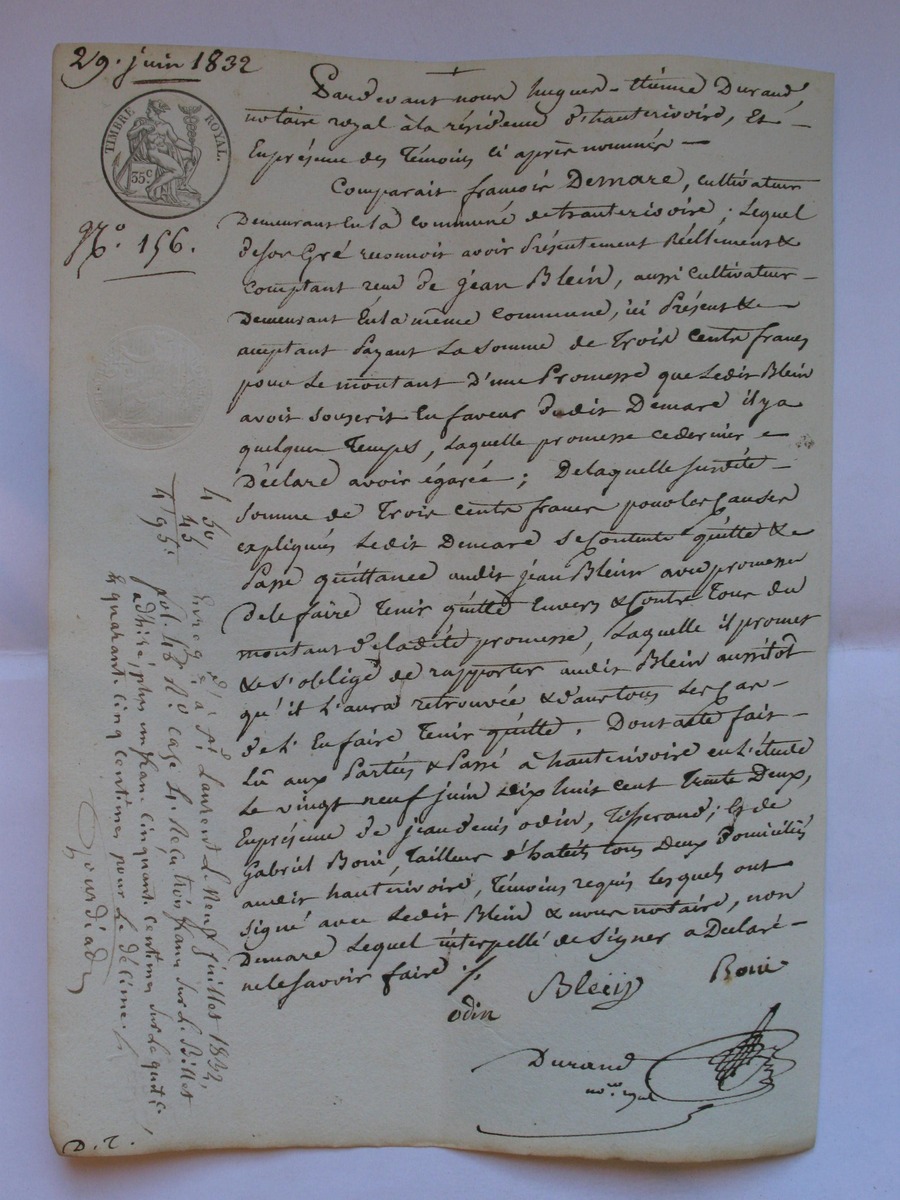 29. juin 1832
TIMBRE ROYAL.
35 c.
N.o 156.
Pardevant nous hugues-étienne Durand,
notaire royal à la résidence d'hauterivoire, Et
En présence des Témoins ci après nommés
Comparait françois Demare, cultivateur
Demeurant En la commune de hauterivoire; Lequel
de son Gré reconnoit avoir Présentement Réellement &
Comptant recu de jean Blein, aussi Cultivateur
Demeurant En la même Commune, ici Présent &
acceptant Payant La somme de Trois Cents francs
pour Le montant D'une Promesse que Ledit Blein
avoit Souscrit En faveur dudit Demare il y a
quelque Temps, Laquelle promesse ce dernier
Déclare avoir égarée; De laquelle susdite
Somme de Trois Cents francs pour les Causes
expliqués Ledit Demare Se Contente quitte &
Passe quittance audit jean Blein avec promesse
De le faire Tenir quitte Envers & Contre Tous du
montant de ladite promesse, Laquelle il promet
& s'oblige de rapporter audit Blein aussitôt
qu'il L'aura retrouvée & dans tous Les Cas
de L'En faire Tenir quitte. Dont acte fait
Lû aux Parties & Passé à hauterivoire en L'étude
Le vingt neuf juin dix huit cent Trente Deux,
En présence de jean denis odin, Tisserand; Et de
Gabriel Boni, Tailleur d'habits tous Deux Domiciliés
audit hauterivoire, Témoins requis lesquels ont
Signé avec Ledit Blein & nous notaire, non
Demare Lequel interpellé de Signer a Déclaré
ne le Savoir faire ./.
odin Blein Boni
Durand
no.re royal
4 50
45
4 95
Enreg.é à S.t Laurent Le Neuf juillet 1832,
fol. 48 R.o Case 4. Reçu trois francs sur Le Billet
adhiré, plus un franc cinquante centimes sur La quitt.ce,
Et quarante cinq centimes pour Le décime.
D. T.